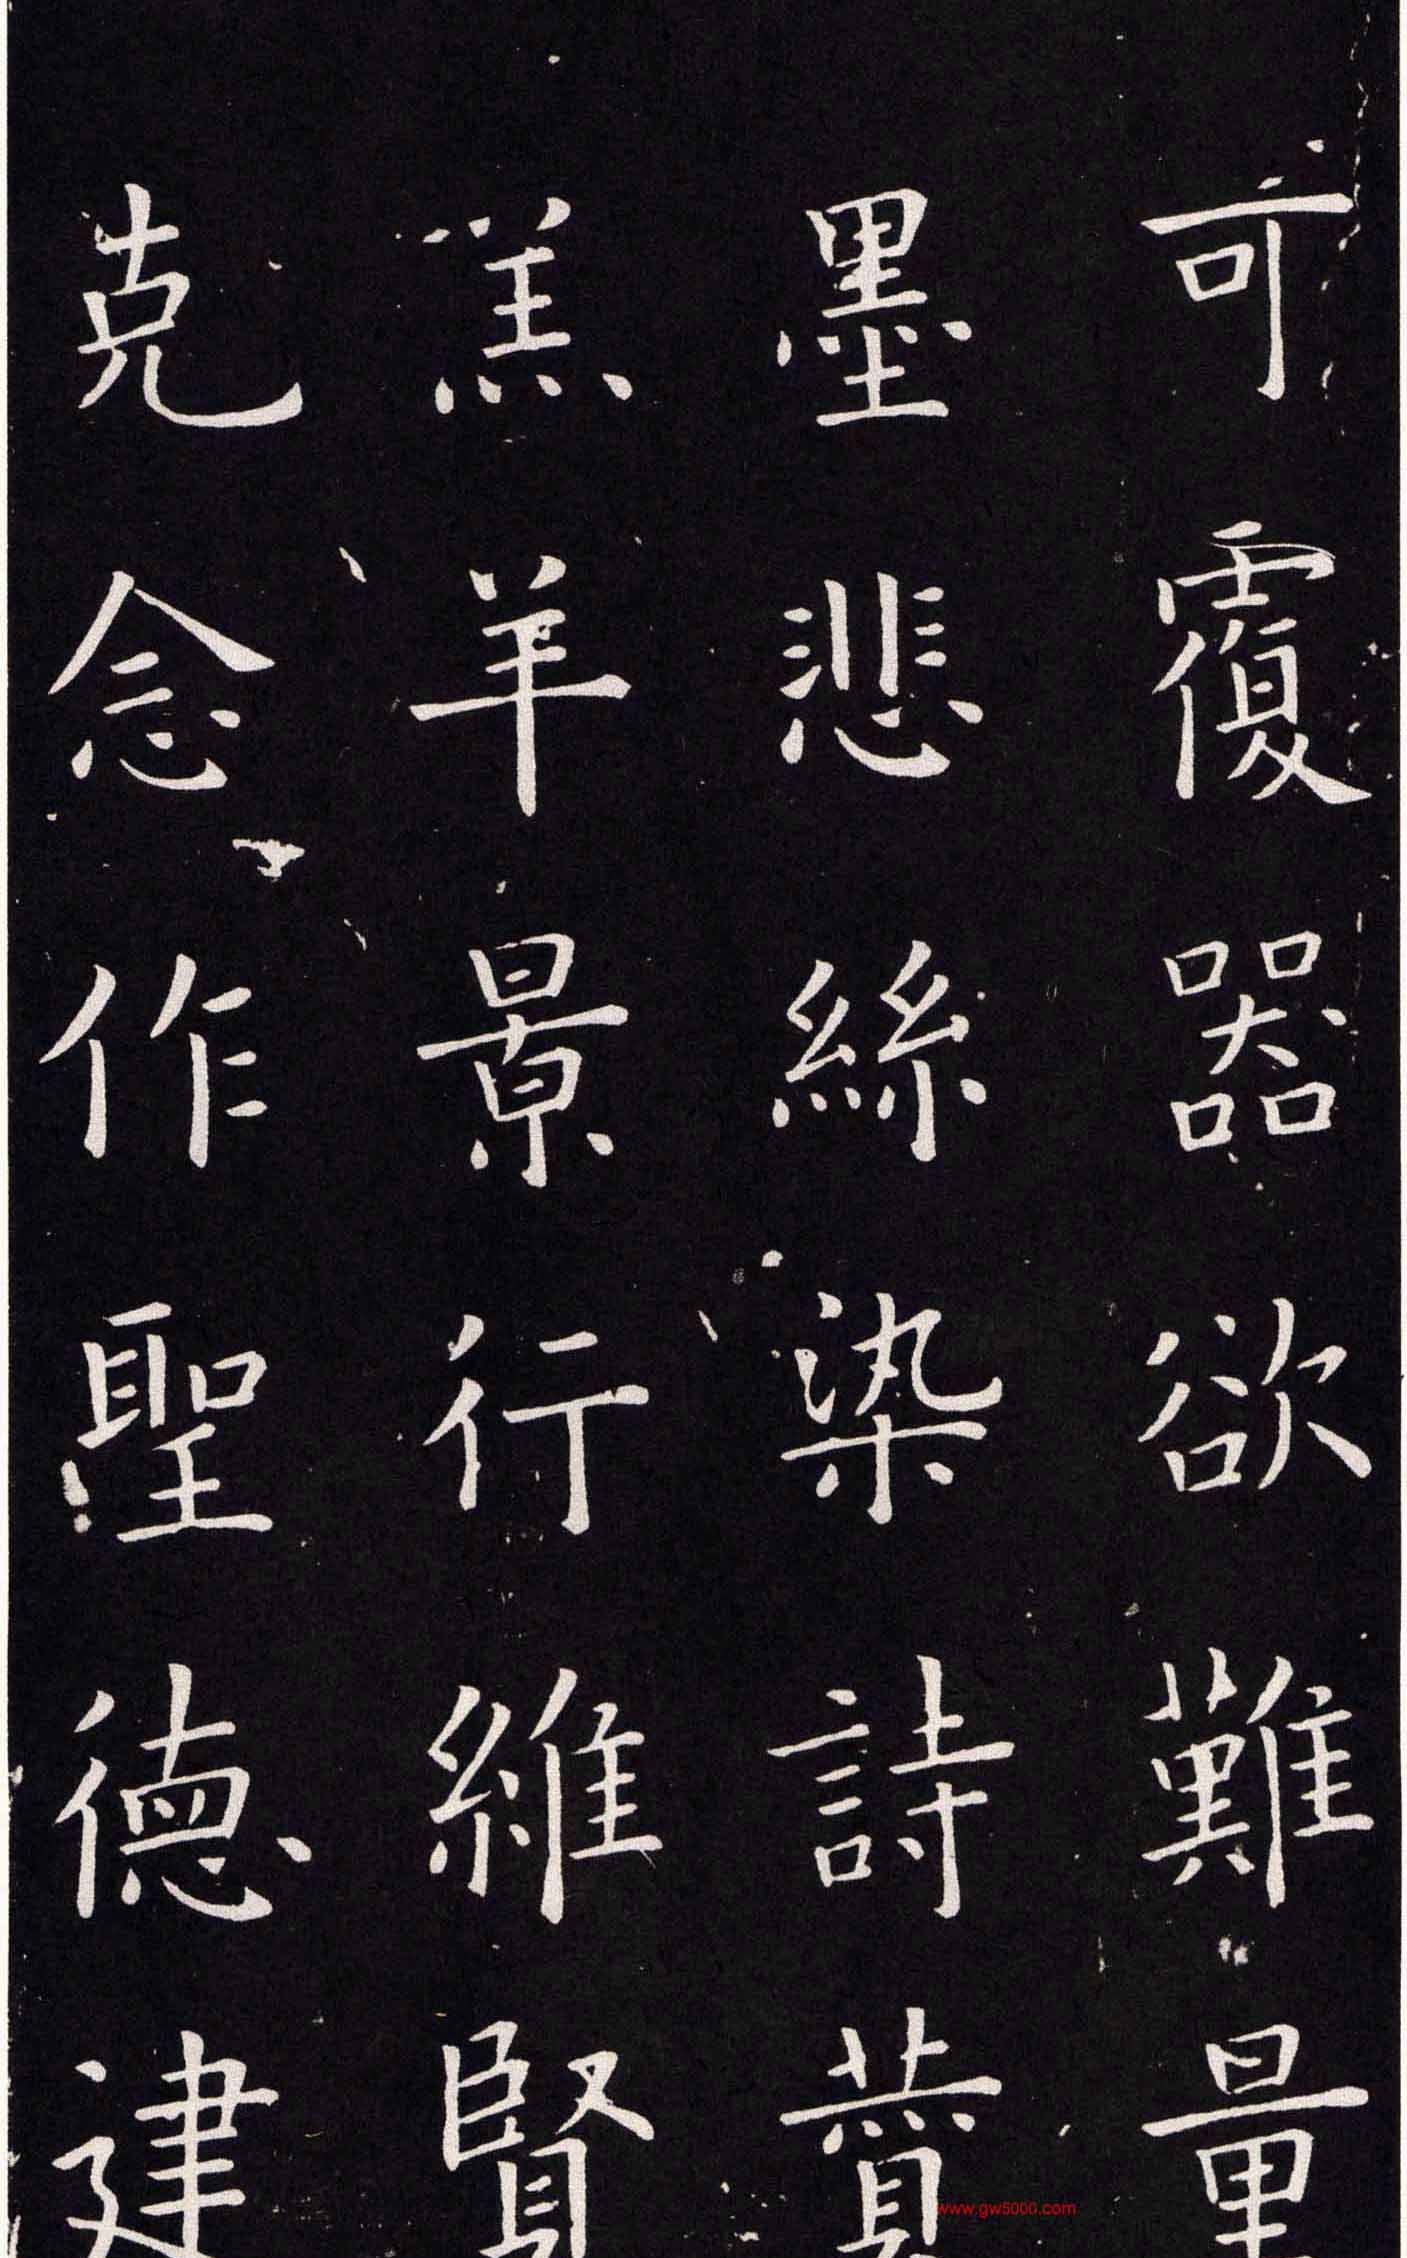 可覆器欲難量
墨悲絲染詩讃
羔羊景行維賢
克念作聖德建
www.gw5000.com